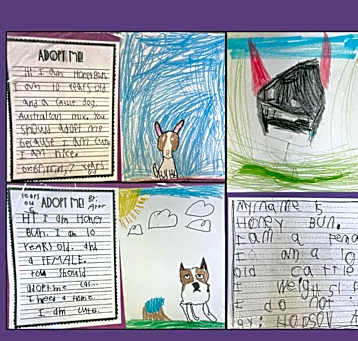 ADOPT ME!
Hi I am HoneyBun.
I am 10 years old
and a Cattle dog,
Australian mix. You
should adopt me
because I am cute
I am nice.
years old
ADOPT ME!
By:
HI I am Honey
Bun. I am 10
years old. and
a FEMALE.
You should
adopt me
I need a home.
I am cute.
My name is
HONEY BUN.
I am a
I am a 10
old cattle
I weight 51
I do not